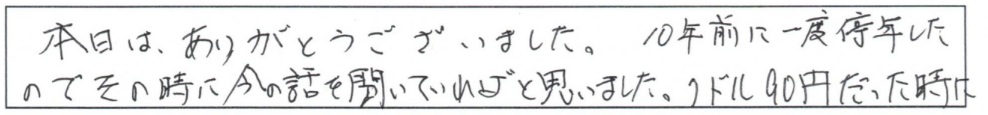 本日は、ありがとうございました。 10年前に一度停年した
のでその時に今の話を聞いていればと思いました。1ドル90円だった時に